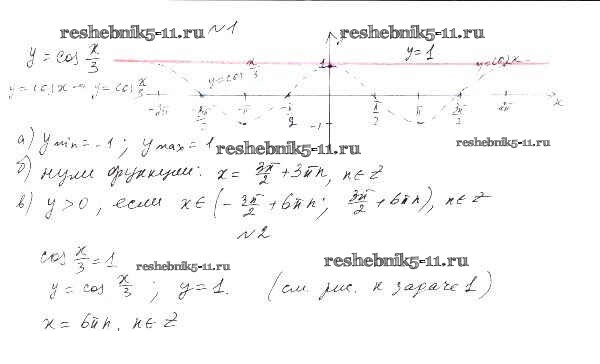 reshebnik5-11.ru №1 reshebnik5-11.ru
y = cos x/3
y
y=1
1
y=cos x/3
y=cosx
y=cosx → y=cos x/3
-2π -3π/2 -π -π/2 π/2 π 3π/2 2π x
-1
а) ymin = -1; ymax = 1
reshebnik5-11.ru
reshebnik5-11.ru
б) нули функции: x = 3π/2 + 3πn, n∈Z
в) y>0, если x∈(-3π/2 + 6πn; 3π/2 + 6πn), n∈Z
№2
cos x/3 = 1
reshebnik5-11.ru reshebnik5-11.ru
y = cos x/3; y=1. (см. рис. к задаче 1)
x = 6πn, n∈Z